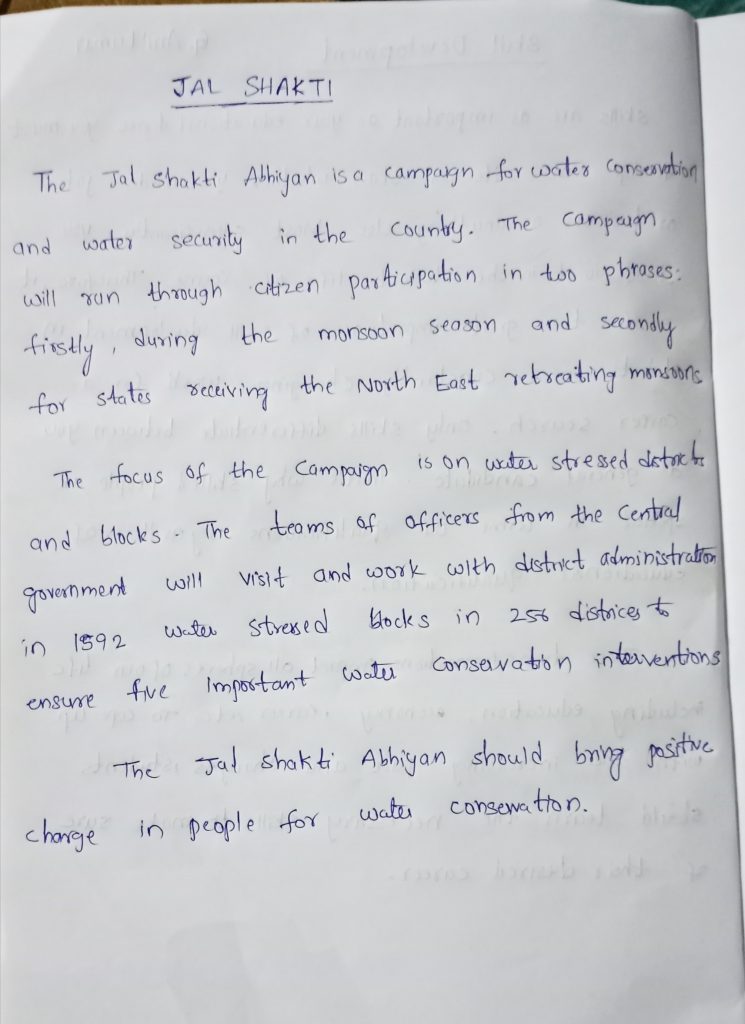 JAL SHAKTI
The Jal Shakti Abhiyan is a campaign for water conservation
and water security in the country. The campaign
will run through citizen participation in two phrases:
firstly, during the monsoon season and secondly
for states receiving the North East retreating monsoons
The focus of the campaign is on water stressed districts
and blocks. The teams of officers from the central
government will visit and work with district administration
in 1592 water stressed blocks in 256 districes to
ensure five important water conservation interventions
The Jal Shakti Abhiyan should bring positive
change in people for water conservation.